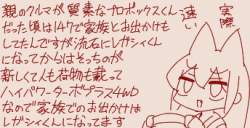 親のクルマが質素なプロボックスくん
だった頃は147で家族とお出かけも
してたんですが流石にレガシィくん
になってからはそっちのが
新しくても荷物も載って
ハイパワーターボプラス4WD
なので家族でのお出かけは
レガシィくんになってます
実際
速い